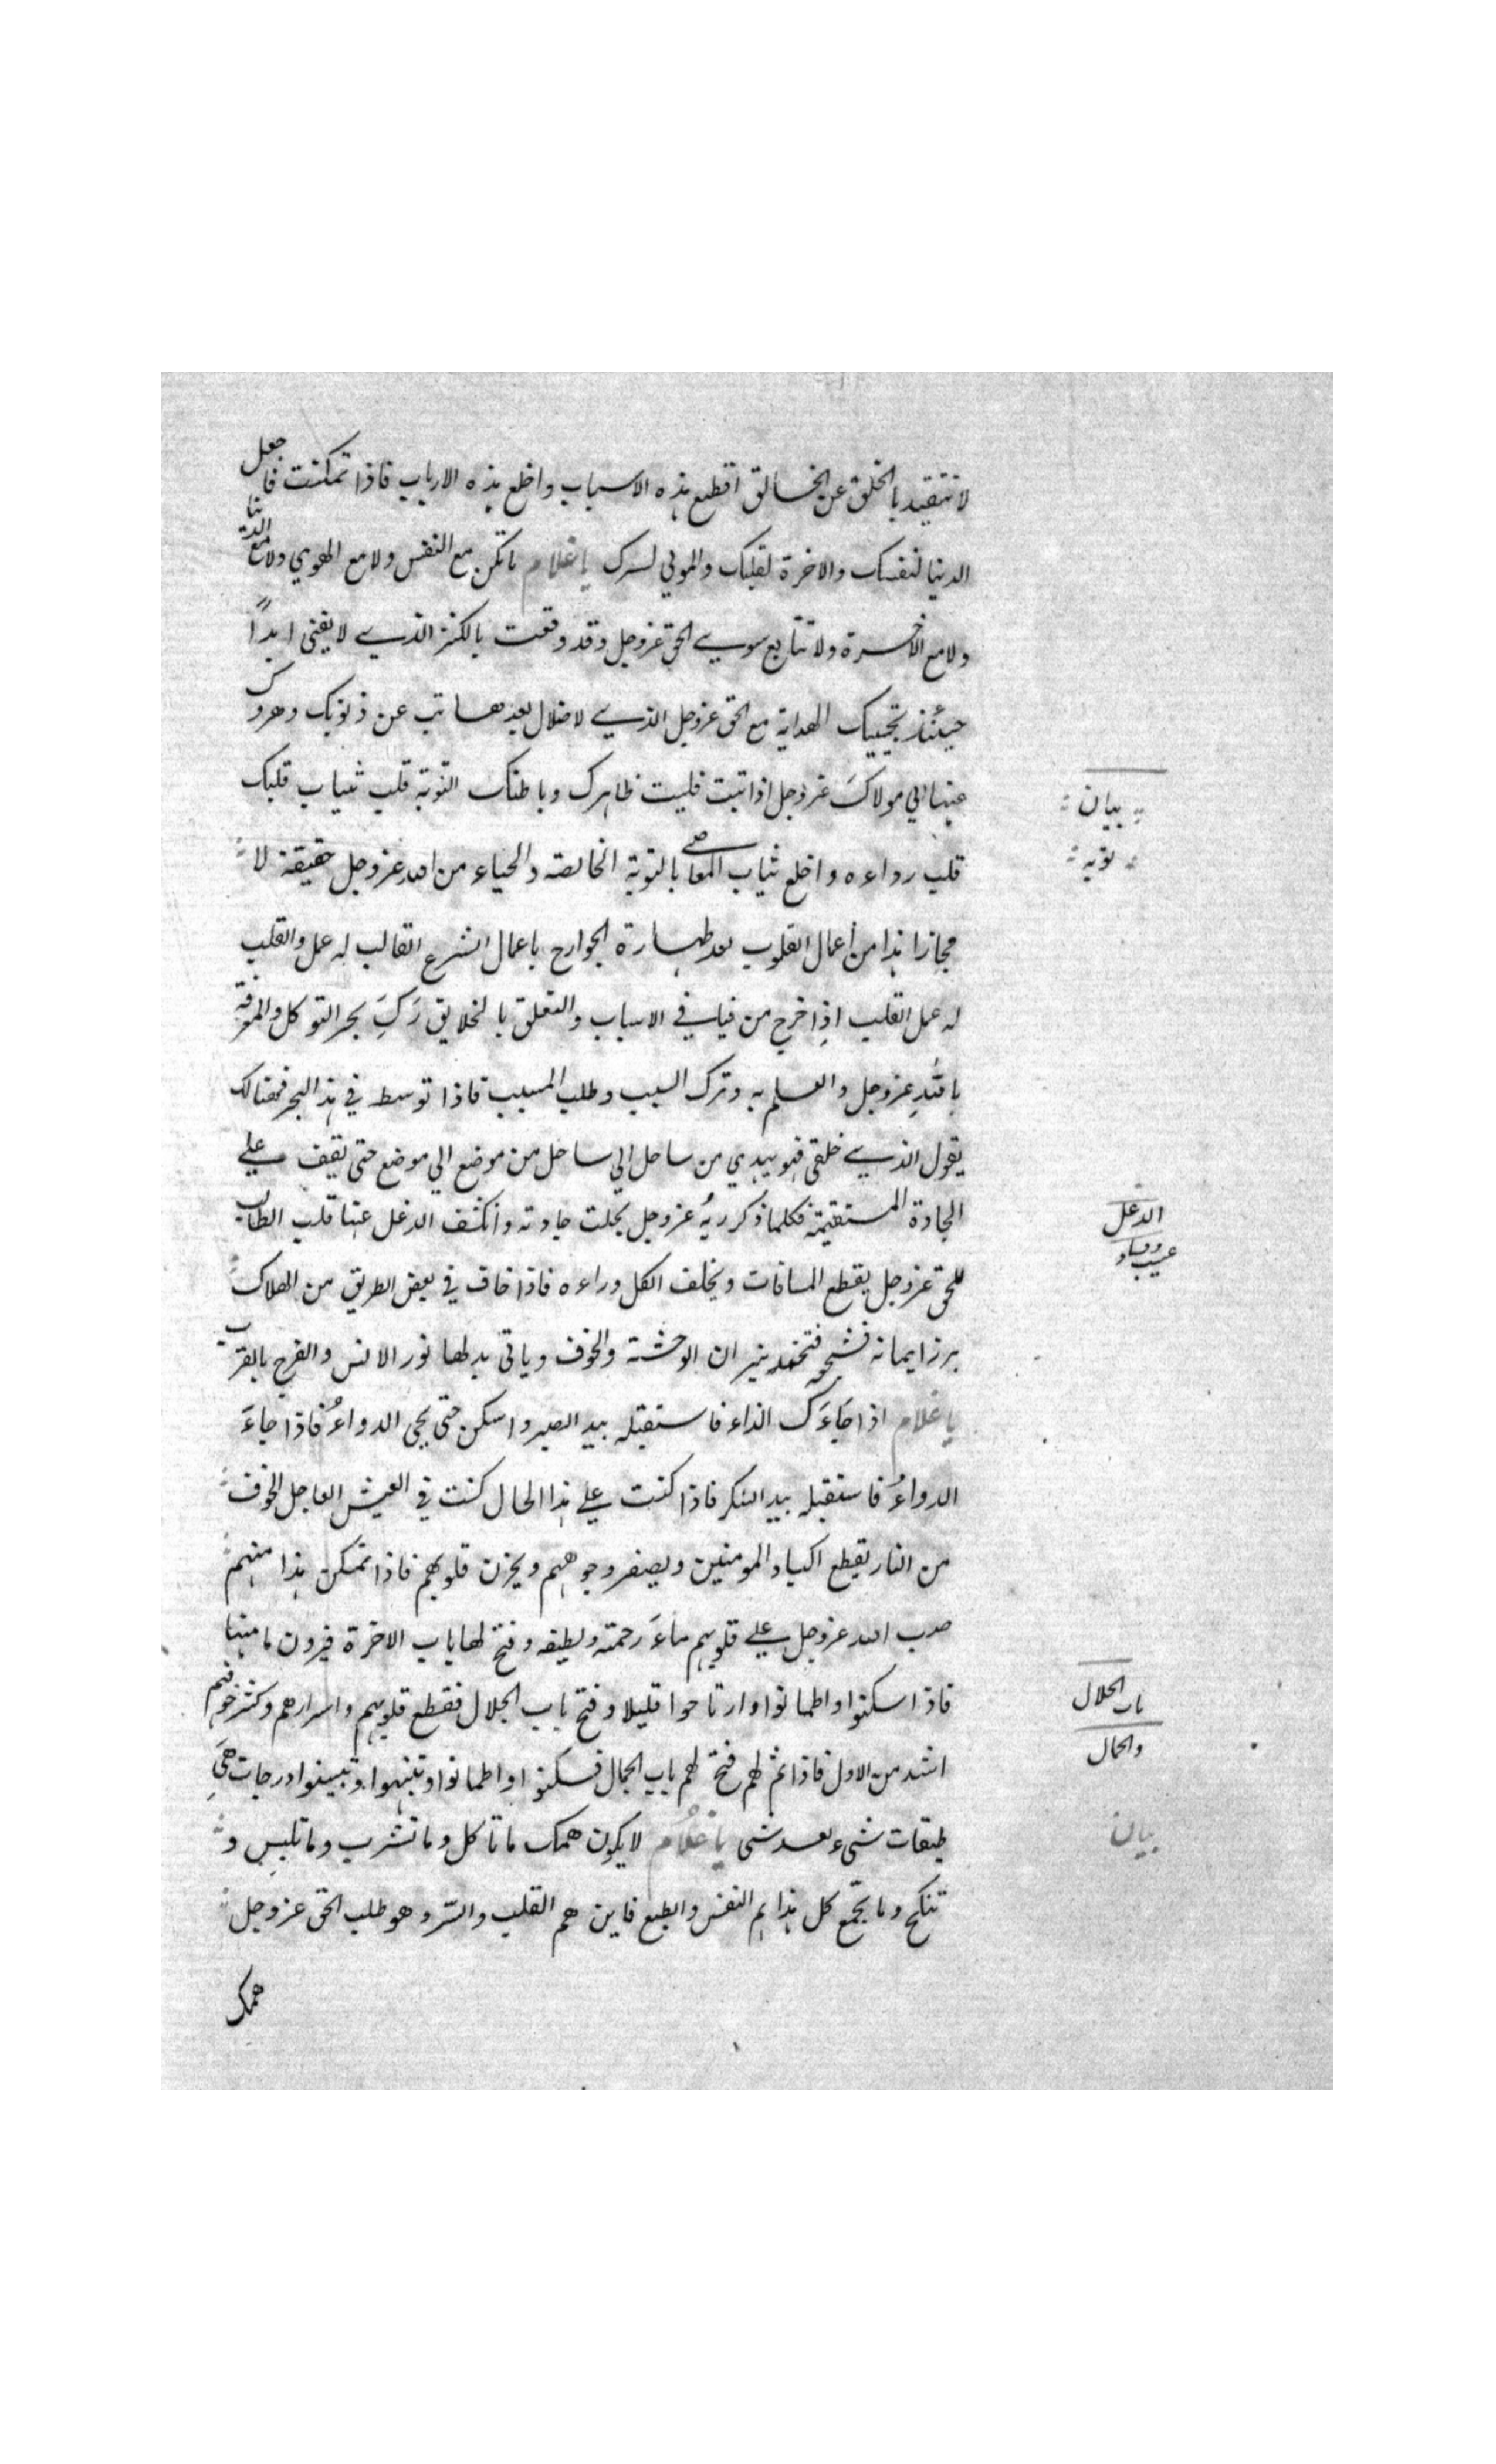 لا تتقيد بالخلق عن الخالق اقطع هذه الاسباب واخلع هذه الارباب فاذا تمكنت فاجعل
الدنيا لنفسك والاخرة لقلبك والمولي لسرك يا غلام لا تكن مع النفس ولا مع الهوي ولا مع الدنيا
ولا مع الاخرة ولا تتابع سوي الحق عزوجل وقد وقعت بالكنز الذي لا يفنى ابدًا
حينئذ تجيبك الهداية مع الحق عزوجل الذي لا ضلال بعدها تب عن ذنوبك وهرول
عنها الي مولاكَ عزوجل اذا تبت فليت ظاهرك وباطنك التوبة قلب ثياب قلبك
قلب رداءه واخلع ثياب المعاصي بالتوبة الخالصة والحياء من الله عزوجل حقيقة لا
مجازا هذا من أعمال القلوب بعد طهارة الجوارح باعمال الشرع القالب له عمل والقلب
له عمل القلب اذا خرج من فيافي الاسباب والتعلق بالخلايق رَكِبَ بحر التوكل والمعرفة
باللهِ عزوجل والعلم به وترك السبب وطلب المسبب فاذا توسط في هذا البحر فهنالك
يقول الذي خلقني فهو يهدي من ساحل الي ساحل من موضع الي موضع حتى يقف علي
الجادة المستقيمة فكلما ذكر ربهُ عزوجل تجلت جادته وانكشف الدغل عنها قلب الطالب
للحق عزوجل يقطع المسافات ويخلف الكل وراءه فاذا خاف في بعض الطريق من الهلاك
برز ايمانه فشجعه فتخمد نيران الوحشة والخوف وياتي بدلها نور الانس والفرح بالقرب
يا غلام اذا جَاءَكَ الداء فاستقبله بيد الصبر واسكن حتى يجي الدواءُ فاذا جاءَ
الدواءُ فاستقبله بيد الشكر فاذا كنت علي هذا الحال كنت في العيش العاجل الخوف
من النار يقطع اكباد المومنين ويصفر وجوههم ويحزن قلوبهم فاذا تمكن هذا منهم
صب الله عزوجل علي قلوبهم ماءَ رحمته ولطيفه وفتح لها باب الاخرة فيرون مامنها
فاذا سكنوا واطمانوا وارتاحوا قليلا وفتح باب الجلال فقطع قلوبهم واسرارهم وكثر خوفهم
اشد من الاول فاذا تم لهم فتح لهم باب الجمال فسكنوا واطمانوا وتنبهوا وتبينوا درجات هِيَ
طبقات شيء بعد شي يا غلام لا يكون همك ما تاكل وما تشرب وما تلبس و
تنكح وما تجمع كل هذا هم النفس والطبع فاين هم القلب والسر وهو طلب الحق عزوجل
همك
بيان
توبه
الدغل
عيب وفساد
باب الجلال
والجمال
بيان